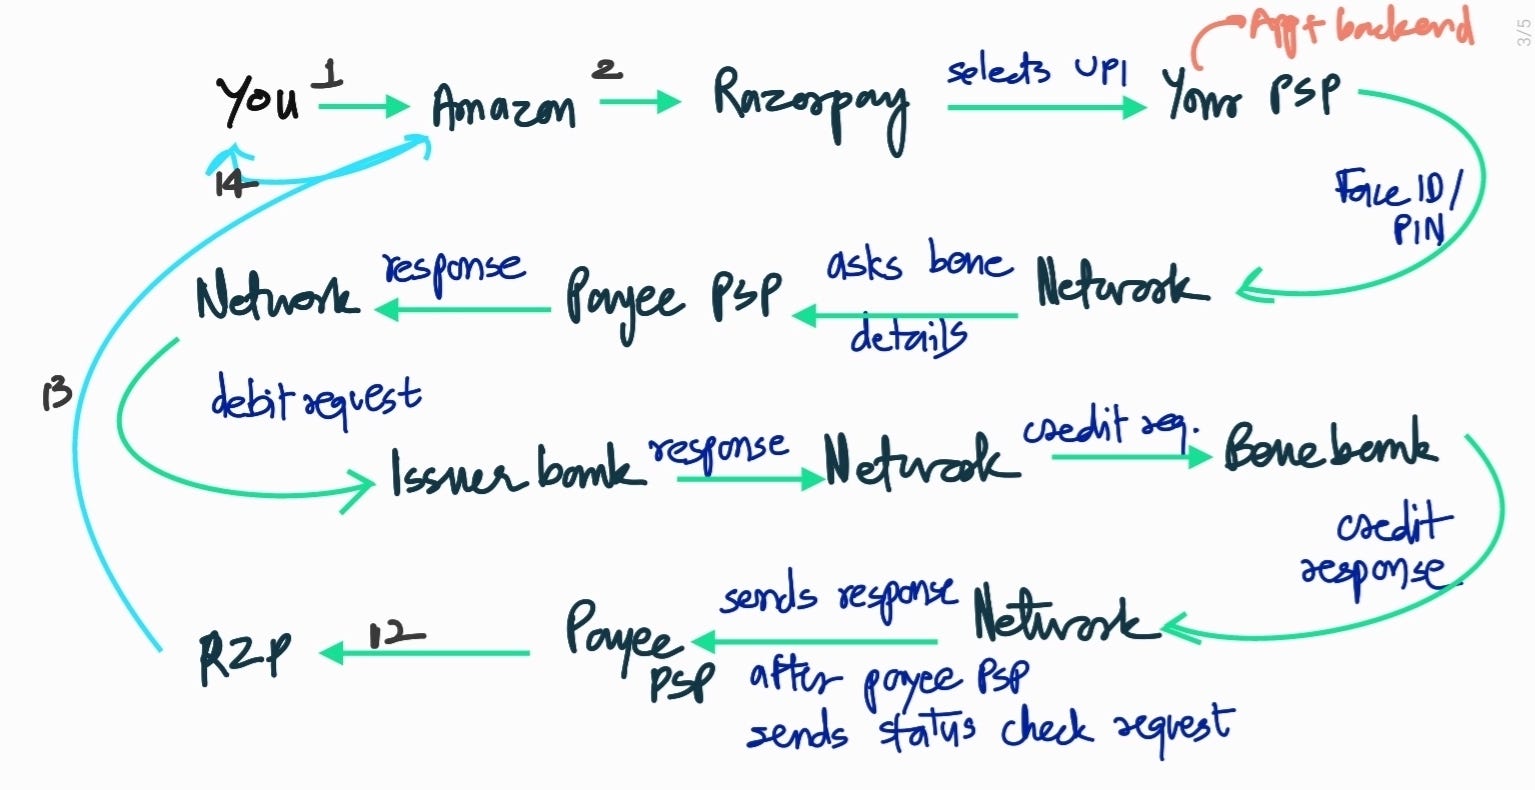 App + backend
3/5
You 1 Amazon 2 Razorpay selects UPI Your PSP
14
Face ID/
PIN
Network response Payee PSP asks bene Network
details
13
debit request
Issuer bank response Network credit req. Bene bank
credit
response
RZP 12 Payee sends response Network
PSP after payee PSP
sends status check request